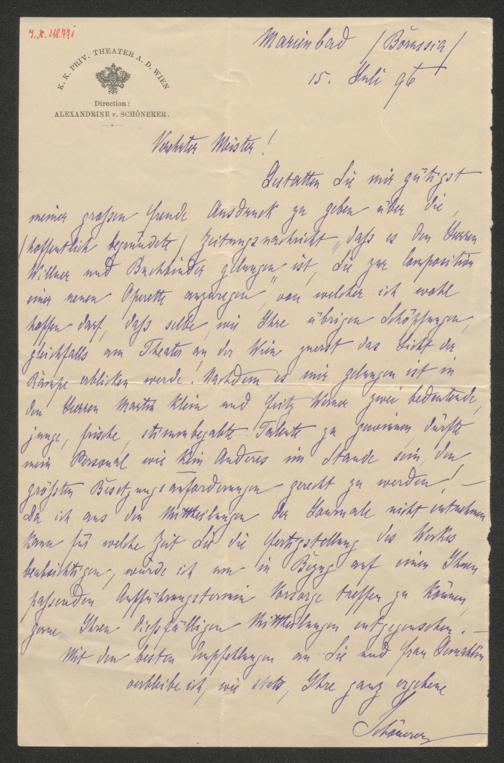 J. N. 118.731
K. K. PRIV. THEATER A. D. WIEN
Direction:
ALEXANDRINE v. SCHÖNERER.
Marienbad /Borussia/
15. Juli 96
Verehrter Meister!
Gestatten Sie mir gütigst
meiner großen Freude Ausdruck zu geben über die,
/hoffentlich begründete/ Zeitungsnachricht „daß es den Herren
Willner und Buchbinder gelungen ist, Sie zur Composition
einer neuen Operette anzuregen", von welcher ich wohl
hoffen darf, daß selbe, wie Ihre übrigen Schöpfungen,
gleichfalls am Theater an der Wien zuerst das Licht der
Rampe erblicken werde. Nachdem es mir gelungen ist in
den Herren Martin Klein und Fritz Werner zwei bedeutende,
junge, frische, stimmbegabte Talente zu gewinnen dürfte
mein Personal wie kein Anderes im Stande sein, den
größten Besetzungsanforderungen gerecht zu werden! –
Da ich aus den Mittheilungen der Journale nicht entnehmen
kann für welche Zeit Sie die Fertigstellung des Werkes
beabsichtigen, würde ich um in Bezug auf einen Ihnen
passenden Aufführungstermin Vorsorge treffen zu können,
gerne Ihren dießfälligen Mittheilungen entgegensehen. –
Mit den besten Empfehlungen an Sie und Frau Gemahlin
verbleibe ich, wie stets, Ihre ganz ergebene
Schönerer